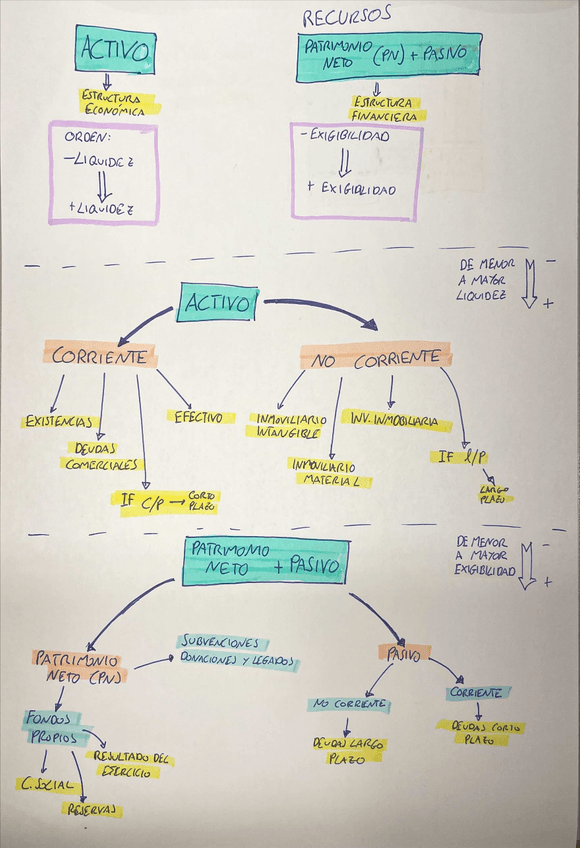 RECURSOS
ACTIVO
PATRIMONIO
NETO (PN) + PASIVO
ESTRUCTURA
ECONÓMICA
ESTRUCTURA
FINANCIERA
ORDEN:
-LIQUIDEZ
+LIQUIDEZ
-EXIGIBILIDAD
+ EXIGIBILIDAD
DE MENOR
A MAYOR
LIQUIDEZ
-
+
ACTIVO
CORRIENTE
NO CORRIENTE
EXISTENCIAS
DEUDAS
COMERCIALES
IF C/P → CORTO
PLAZO
EFECTIVO
INMOVILIARIO
INTANGIBLE
INMOVILIARIO
MATERIAL
INV. INMOBILIARIA
IF l/P
LARGO
PLAZO
PATRIMONIO
NETO + PASIVO
DE MENOR
A MAYOR
EXIGIBILIDAD
-
+
PATRIMONIO
NETO (PN)
SUBVENCIONES
DONACIONES Y LEGADOS
FONDOS
PROPIOS
RESULTADO DEL
EJERCICIO
C. SOCIAL
RESERVAS
PASIVO
NO CORRIENTE
DEUDAS LARGO
PLAZO
CORRIENTE
DEUDAS CORTO
PLAZO